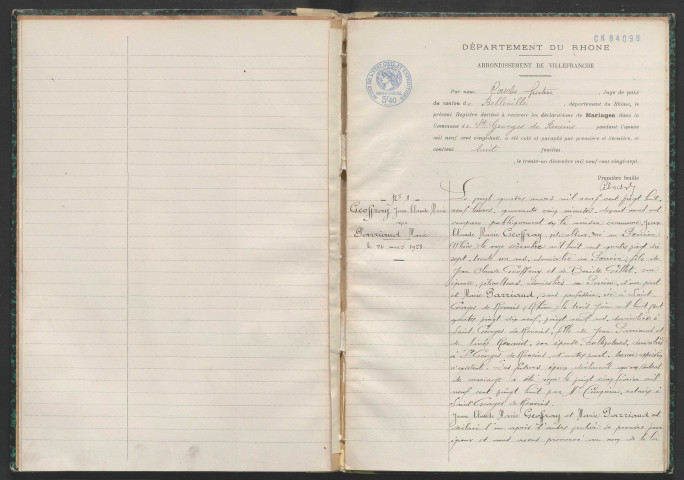 CK 84098
DÉPARTEMENT DU RHÔNE
ARRONDISSEMENT DE VILLEFRANCHE
Par nous, Juge de paix
du canton de Belleville, département du Rhône, le
présent Registre destiné à recevoir les déclarations de Mariages dans la
Commune de St Georges de Reneins pendant l'année
mil neuf cent vingt-huit, a été coté et paraphé par première et dernière, et
contient huit feuilles
, le trente-un décembre mil neuf cent vingt-sept.
Première feuille
5f40
N° 8
Geoffray Jean Claude Marie
et
Darriaud Marie
le 24 mars 1928
Le vingt quatre mars mil neuf cent vingt huit,
neuf heures, quarante cinq minutes, devant nous ont
comparu publiquement en la maison commune, Jean
Claude Marie Geoffray, né à
Rhône, le onze décembre mil huit cent quatre vingt dix
sept, trente un ans, domicilié à fils de
Jean Claude Geoffray et de son
épouse, domiciliés à d'une part
et Marie Darriaud, sans profession, née à Saint
Georges de Reneins, Rhône, le trois juin mil huit cent
quatre vingt dix neuf, vingt huit ans, domiciliée à
Saint Georges de Reneins, fille de Jean Darriaud et
de son épouse, domiciliés
à St Georges de Reneins, d'autre part,
Les futurs époux déclarent qu'un contrat
de mariage a été reçu le vingt cinq février mil
neuf cent vingt huit par Me notaire à
Saint Georges de Reneins.
Jean Claude Marie Geoffray et Marie Darriaud ont
déclaré l'un après l'autre vouloir se prendre pour
époux et nous avons prononcé au nom de la loi